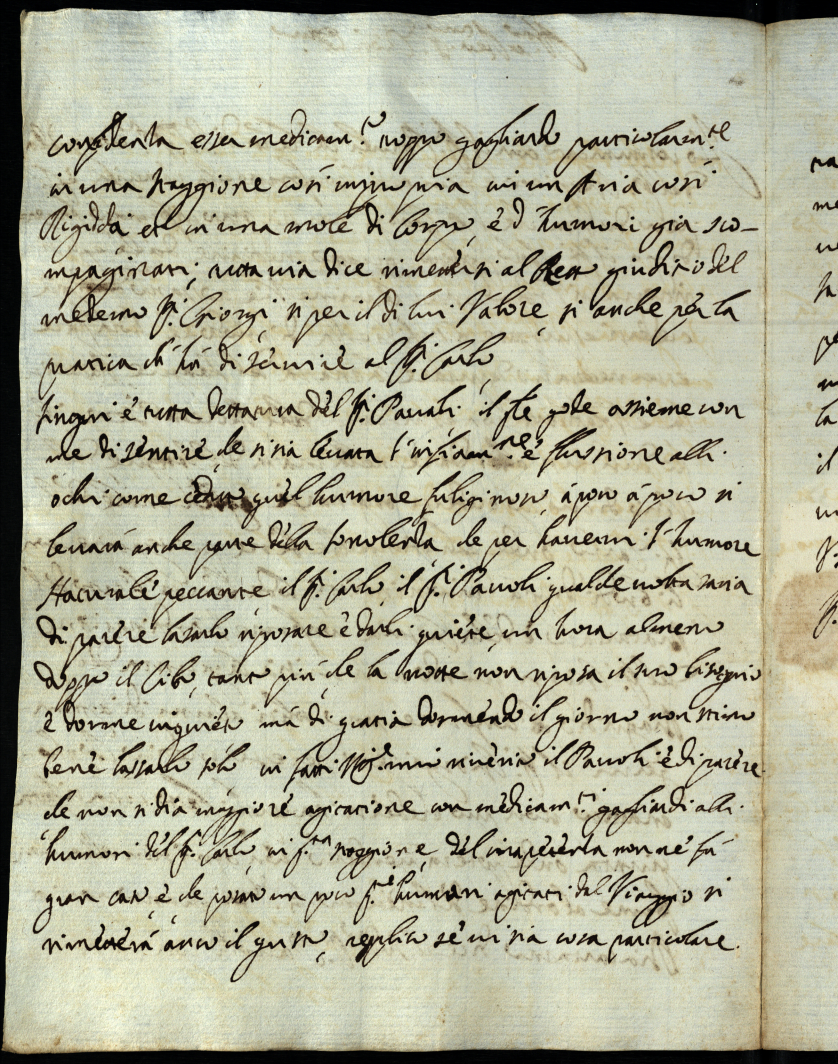 considerla esser medicam.to troppo gagliardo particolarm.te
in una staggione così impropria in un Aria così
Rigidda et in una mole di Corpo, è d'humori gia sco-
mpaginati; tutta via dice rimettersi al Rett giuditio del
medemo S.r Giorgi si per il di lui Valore, si anche per la
pratica ch'hà di servire al S.r Carlo,
sin qui è tutta dettatura del S.r Pauoli il q.le gode assieme con
me di sentire, che si sia levata l'infiam.ne è flussione alli
ochi come quel humore fuliginoso à poco à poco si
levarà anche parte della che per haverni l'humore
Naturale peccante il S.r Carlo il S.r Pauoli qualche volta saria
di parere lasarlo riposare è darli quiete un hora almeno
doppo il Cibo, tanto più che la notte non riposa il suo bisogno
è dorme inquieto mà di gratia dormendo il giorno non stimo
bene lassarlo solo in fatti mio riverito il Pauoli è di parere
che non si dia maggiore agitatione con medicam.ti gagliardi alli
humori del S.r Carlo in q.ta staggione, del inapetenza non ne fà
gran caso è che posato un poco q.li humori agitati dal Viaggio si
rimetterà anco il gusto, replico se vi sia cosa particolare